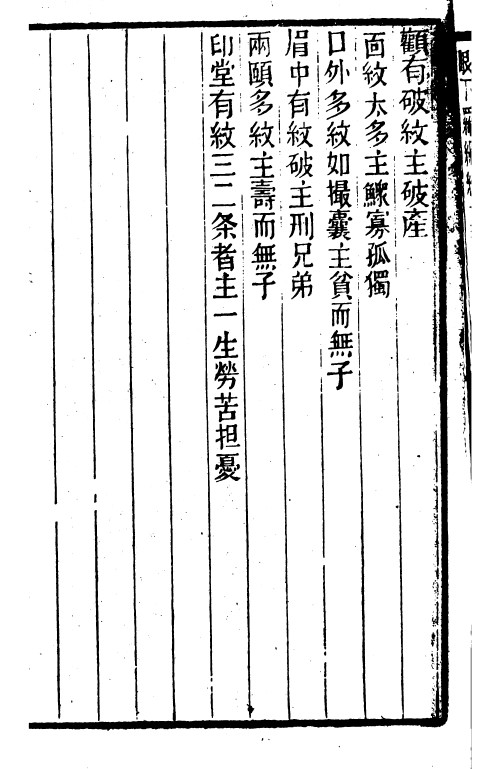 顴有破紋主破產
面紋太多主鰥寡孤獨
口外多紋如撮囊主貧而無子
眉中有紋破主刑兄弟
兩頤多紋主壽而無子
印堂有紋三二条者主一生勞苦担憂